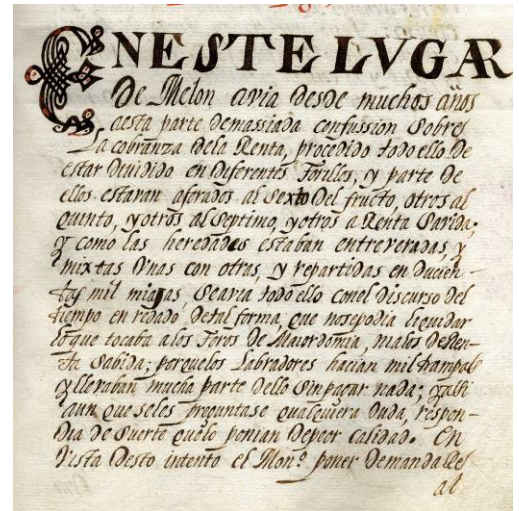 ENESTE LVGAR
De Melon avia desde muchos años
aesta parte Demassiada confussion Sobre
La cobranza dela Renta, procedido todo ello De
estar Dividido en Diferentes forillos, y parte de
ellos estaran aforados al Sexto Del fructo, otros al
Quinto, y otros al Septimo, y otros a Renta Savida;
y como las heredades estaban entreveradas, y
mixtas Vnas con otras, y repartidas en Ducien-
tas mil miajas, Seavia todo ello conel Discurso Del
tiempo en redado Detal forma, que nosepodia liquidar
loque tocaba alos foros de Maiordomia, nialos DeRen-
ta Sabida; porquelos Labradores hacian mil trampas
y llevaban mucha parte Dello Sinpagar nada; yassi
aun que seles preguntase qualquiera Duda, respon-
Dia de Suerte que lo ponian Depeor calidad. En
Vista Desto intento el Mon.º poner Demanda
al